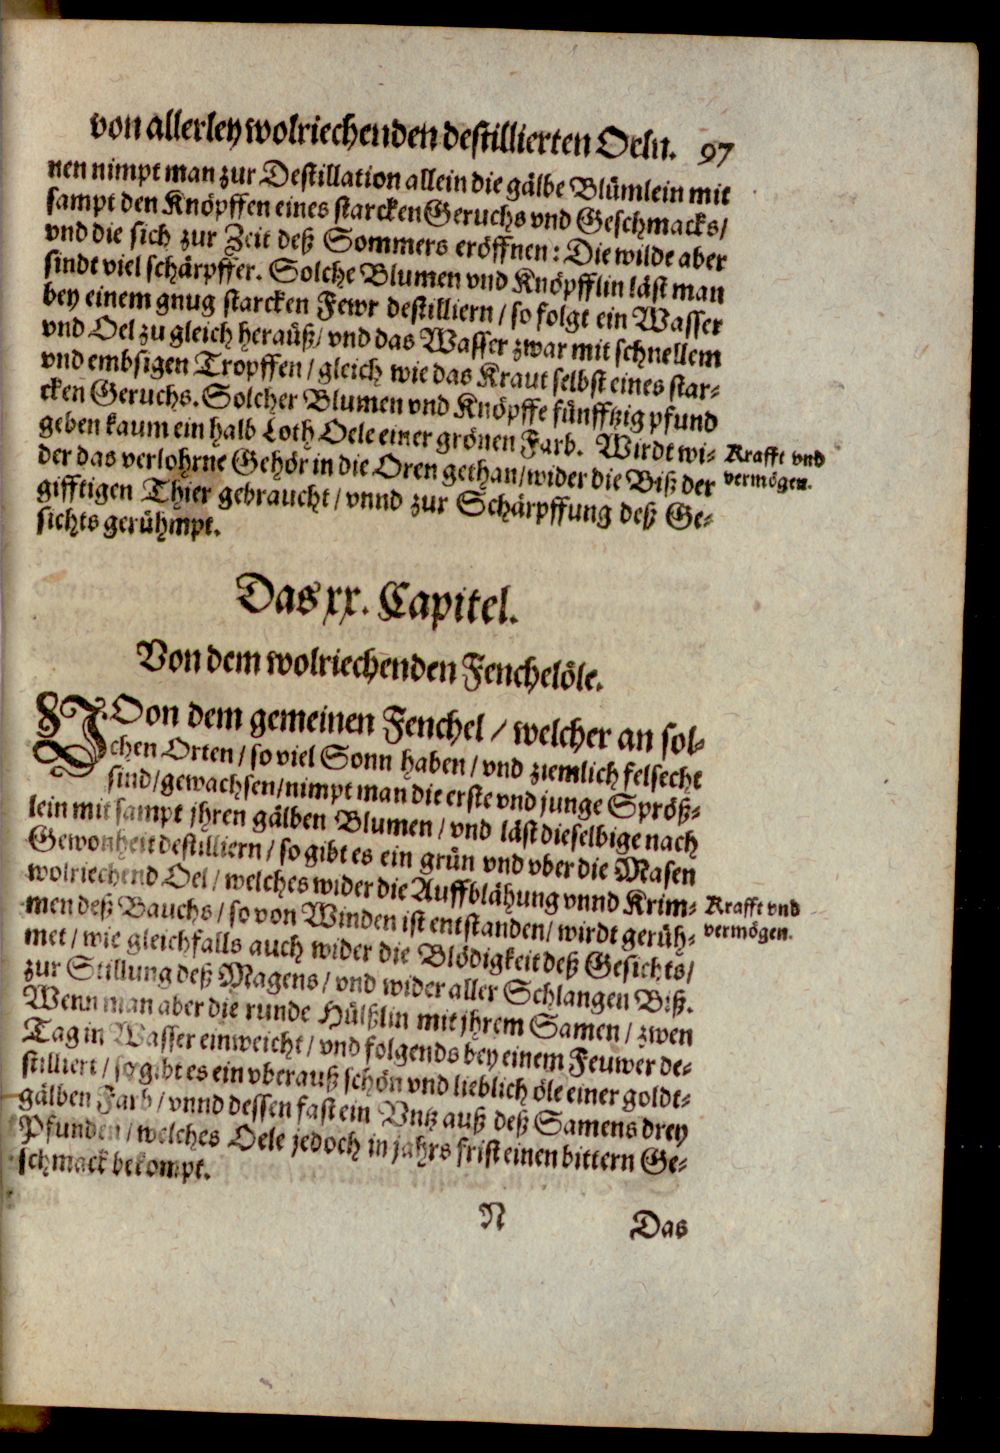 von allerley wolriechenden destillierten Oeln. 97
nen nimpt man zur Destillation allein die gälbe Blümlein mit
sampt den Knöpffen eines starcken Geruchs vnd Geschmacks/
vnd die sich zur Zeit deß Sommers eröffnen: Die wilde aber
sindt viel schärpffer. Solche Blumen vnd Knöpfflin läst man
bey einem gnug starcken Fewr destilliern / so folgt ein Wasser
vnd Oel zu gleich herauß/ vnd das Wasser zwar mit schnellem
vnd embsigen Tropffen / gleich wie das Kraut selbst eines star-
cken Geruchs. Solcher Blumen vnd Knöpffe fünfftzig pfund
geben kaum ein halb Loth Oele einer grönen Farb. Wirdt wi-
der das verlohrne Gehör in die Oren gethan/ wider die Biß der
gifftigen Thier gebraucht / vnnd zur Schärpffung deß Ge-
sichts gerühmpt.
Krafft vnd
vermögen.
Das xx. Capitel.
Von dem wolriechenden Fenchelöle.
VOon dem gemeinen Fenchel / welcher an sol-
chen Orten / so viel Sonn haben / vnd ziemlich felsecht
sind/ gewachsen/ nimpt man die erste vnd junge Sproß-
lein mit sampt jhren gälben Blumen / vnd läst dieselbige nach
Gewonheit destilliern / so gibt es ein grün vnd vber die Masen
wolriechend Oel / welches wider die Auffblähung vnnd Krim-
men deß Bauchs / so von Winden ist entstanden/ wirdt gerüh-
met / wie gleichfalls auch wider die Blödigkeit deß Gesichts/
zur Stillung deß Magens / vnd wider aller Schlangen Biß.
Wenn man aber die runde Hülßlin mit jhrem Samen / zwen
Tag in Wasser einweicht / vnd folgends bey einem Feuwer de-
stilliert / so gibt es ein vberauß schön vnd lieblich öle einer goldt-
gälben Farb / vnnd dessen fast ein Vntz auß deß Samens drey
Pfunden / welches Oele jedoch in jahrs frist einen bittern Ge-
schmack bekompt.
Krafft vnd
vermögen.
N Das